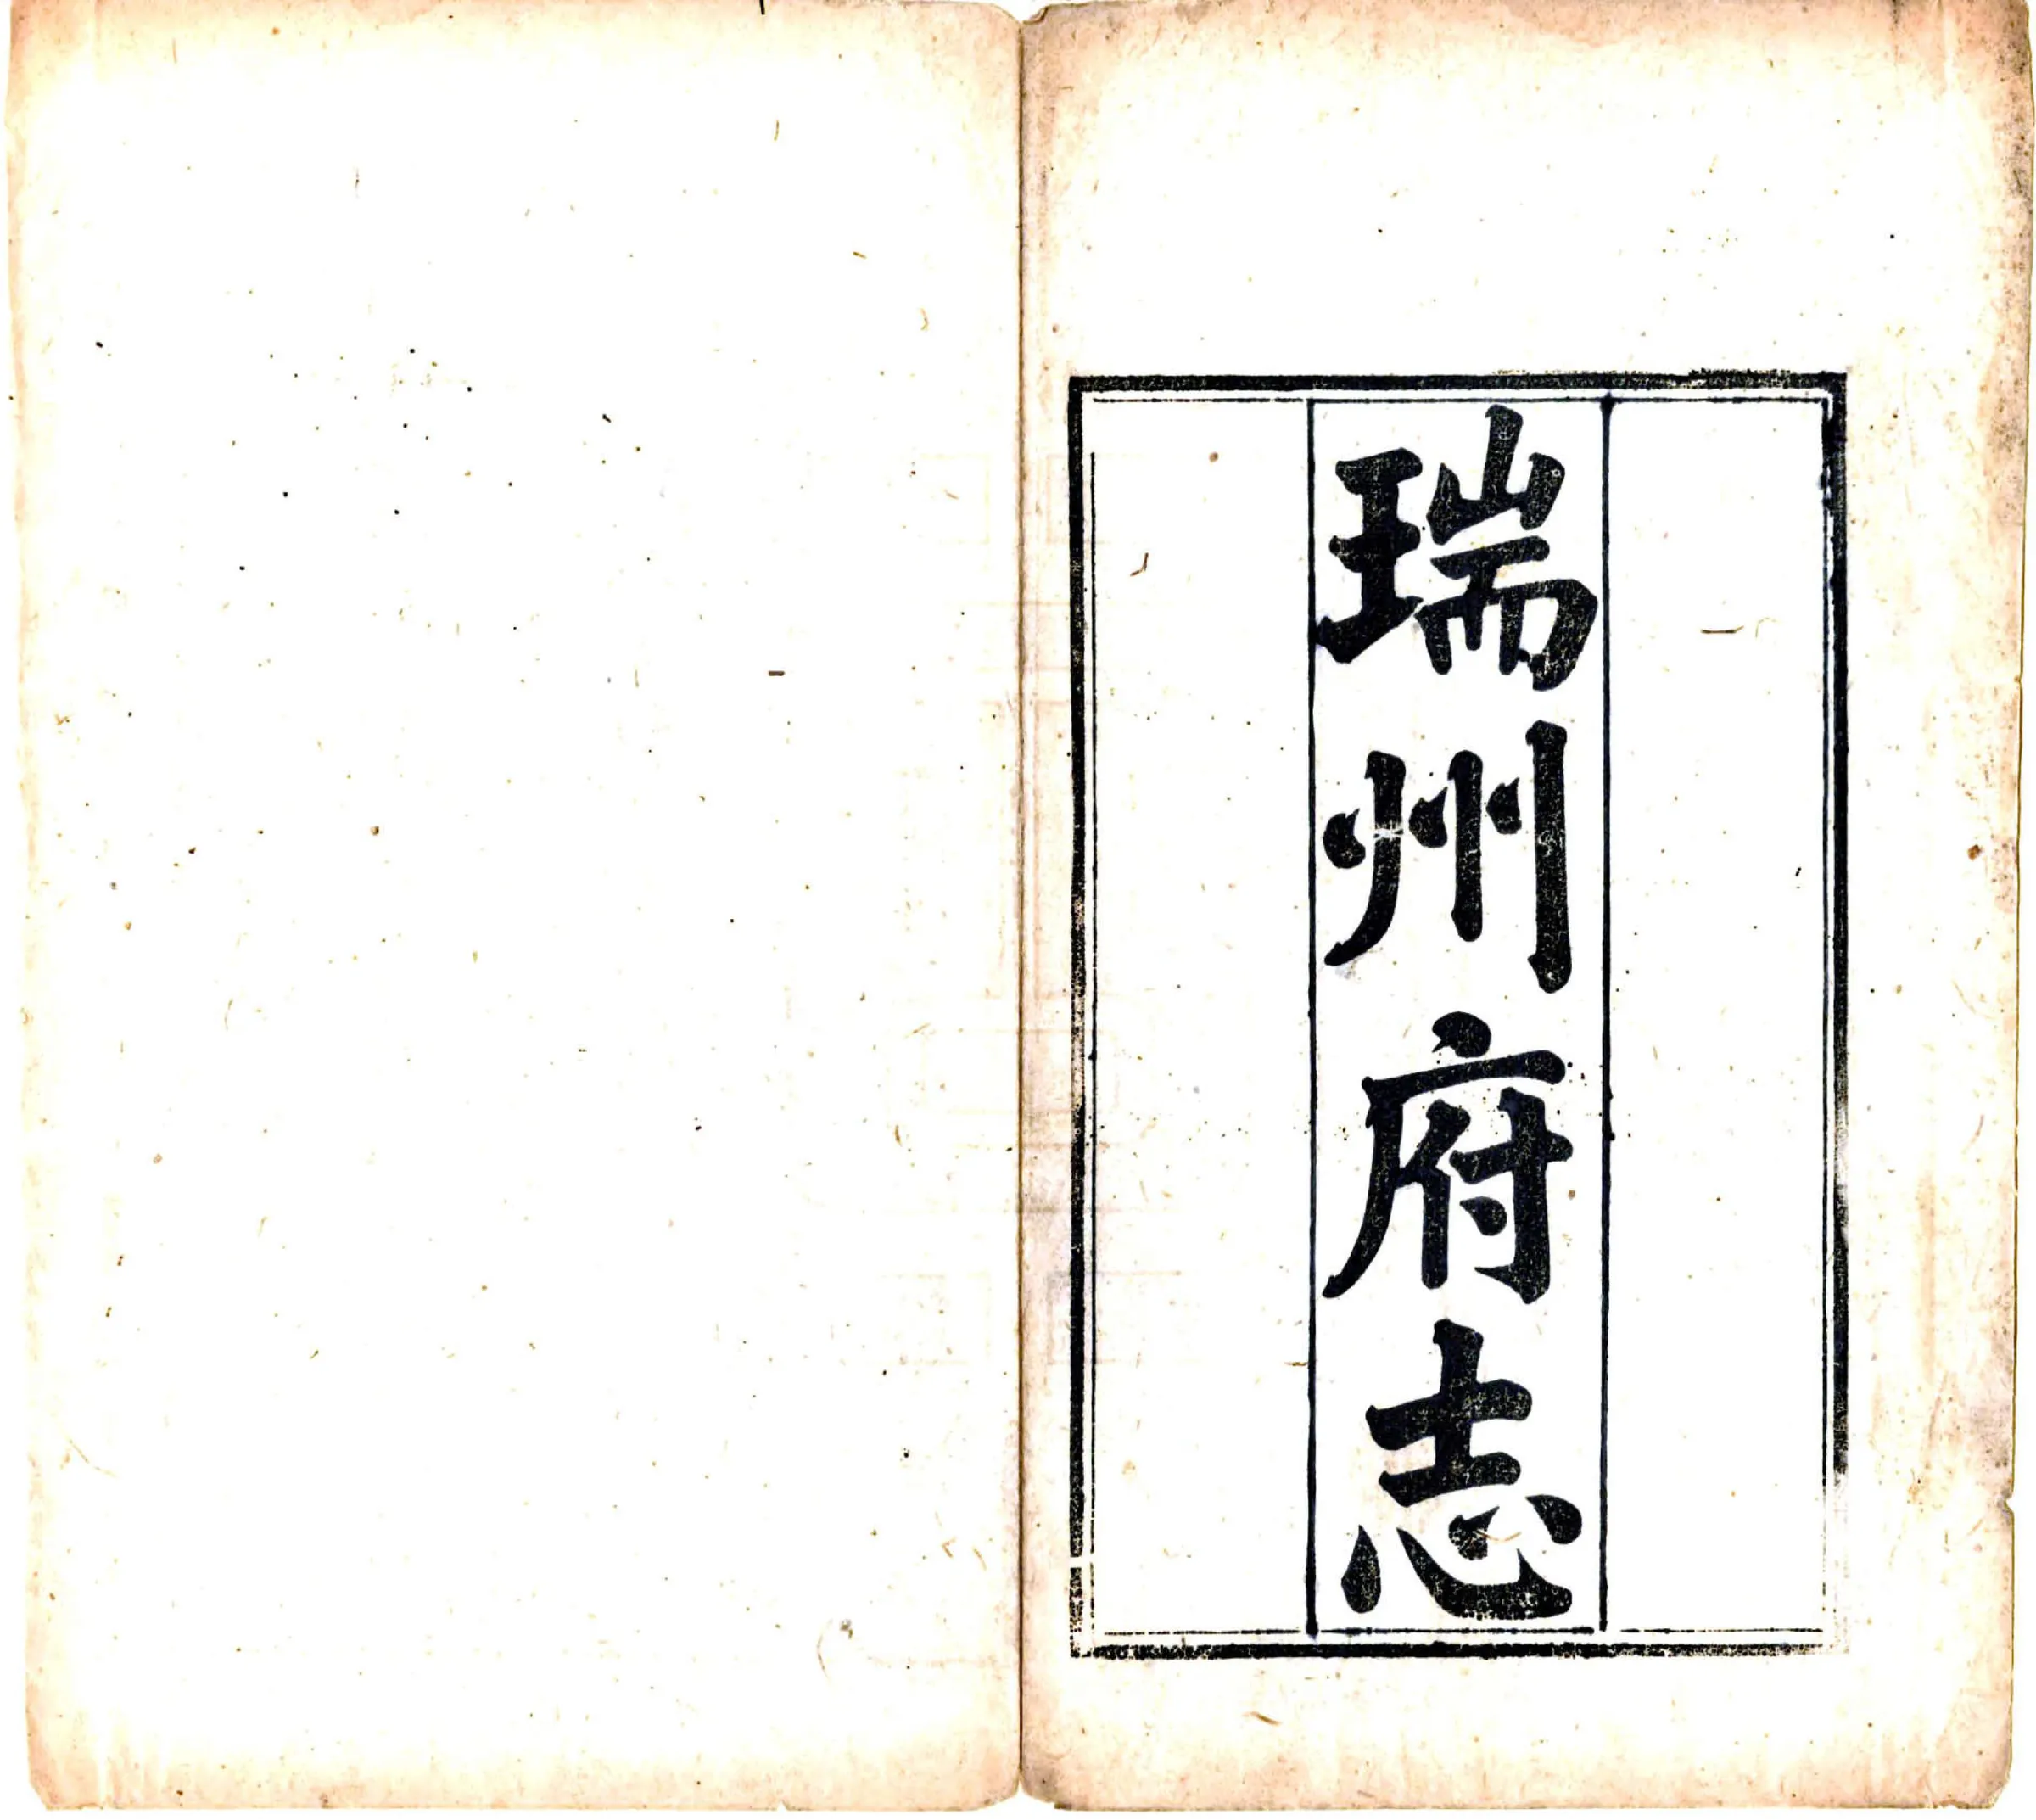 瑞州府志